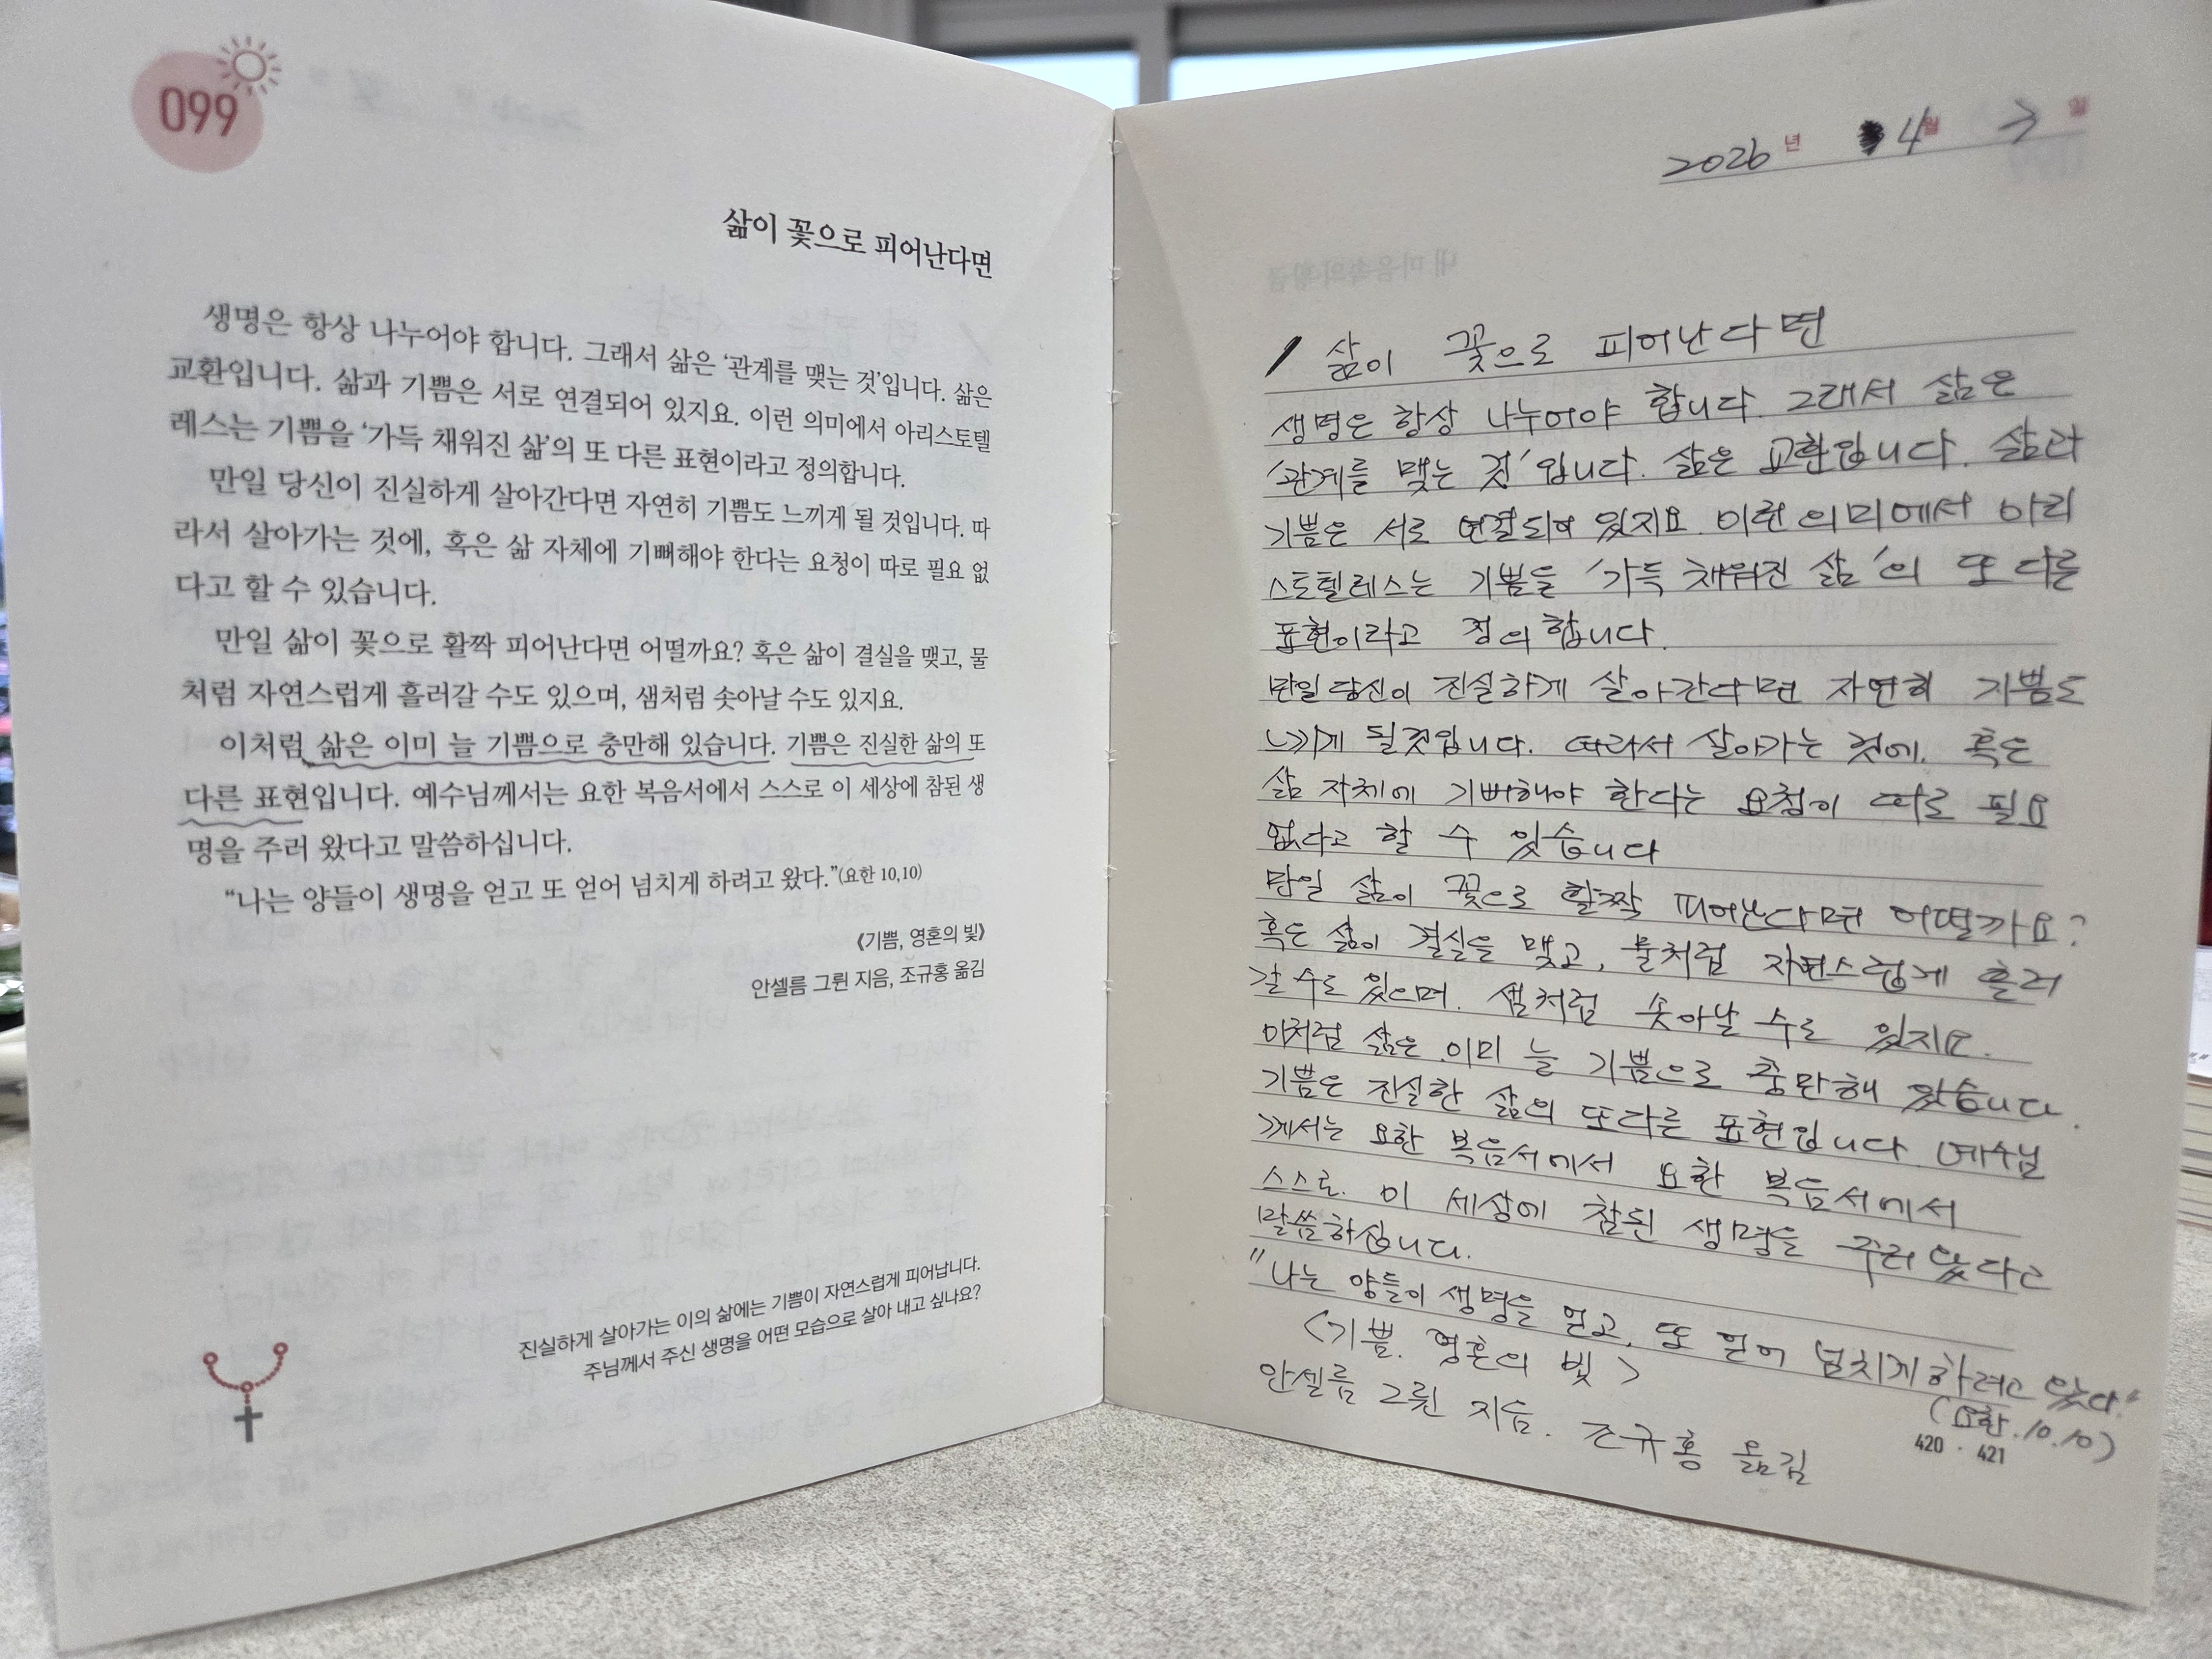 099
삶이 꽃으로 피어난다면
생명은 항상 나누어야 합니다. 그래서 삶은 ‘관계를 맺는 것’입니다. 삶은
교환입니다. 삶과 기쁨은 서로 연결되어 있지요. 이런 의미에서 아리스토텔
레스는 기쁨을 ‘가득 채워진 삶’의 또 다른 표현이라고 정의합니다.
만일 당신이 진실하게 살아간다면 자연히 기쁨도 느끼게 될 것입니다. 따
라서 살아가는 것에, 혹은 삶 자체에 기뻐해야 한다는 요청이 따로 필요 없
다고 할 수 있습니다.
만일 삶이 꽃으로 활짝 피어난다면 어떨까요? 혹은 삶이 결실을 맺고, 물
처럼 자연스럽게 흘러갈 수도 있으며, 샘처럼 솟아날 수도 있지요.
이처럼 삶은 이미 늘 기쁨으로 충만해 있습니다. 기쁨은 진실한 삶의 또
다른 표현입니다. 예수님께서는 요한 복음서에서 스스로 이 세상에 참된 생
명을 주러 왔다고 말씀하십니다.
“나는 양들이 생명을 얻고 또 얻어 넘치게 하려고 왔다.”(요한 10,10)
《기쁨, 영혼의 빛》
안셀름 그륀 지음, 조규홍 옮김
진실하게 살아가는 이의 삶에는 기쁨이 자연스럽게 피어납니다.
주님께서 주신 생명을 어떤 모습으로 살아 내고 싶나요?
2026년 4월 7일
/ 삶이 꽃으로 피어난다면
생명은 항상 나누어야 합니다. 그래서 삶은
'관계를 맺는 것'입니다. 삶은 교환입니다. 삶과
기쁨은 서로 연결되어 있지요. 이런 의미에서 아리
스토텔레스는 기쁨을 '가득 채워진 삶'의 또 다른
표현이라고 정의합니다.
만일 당신이 진실하게 살아간다면 자연히 기쁨도
느끼게 될것입니다. 따라서 살아가는 것에. 혹은
삶 자체에 기뻐해야 한다는 요청이 따로 필요
없다고 할 수 있습니다
만일 삶이 꽃으로 활짝 피어난다면 어떨까요?
혹은 삶이 결실을 맺고, 물처럼 자연스럽게 흘러
갈 수도 있으며. 샘처럼 솟아날 수도 있지요.
이처럼 삶은 이미 늘 기쁨으로 충만해 있습니다.
기쁨은 진실한 삶의 또다른 표현입니다. 예수님
께서는 요한 복음서에서 요한 복음서에서
스스로. 이 세상에 참된 생명을 주러 왔다고
말씀하십니다.
"나는 양들이 생명을 얻고, 또 얻어 넘치게하려고 왔다."
(요한.10.10)
<기쁨. 영혼의 빛>
안셀름 그륀 지음. 조규홍 옮김
420 · 421